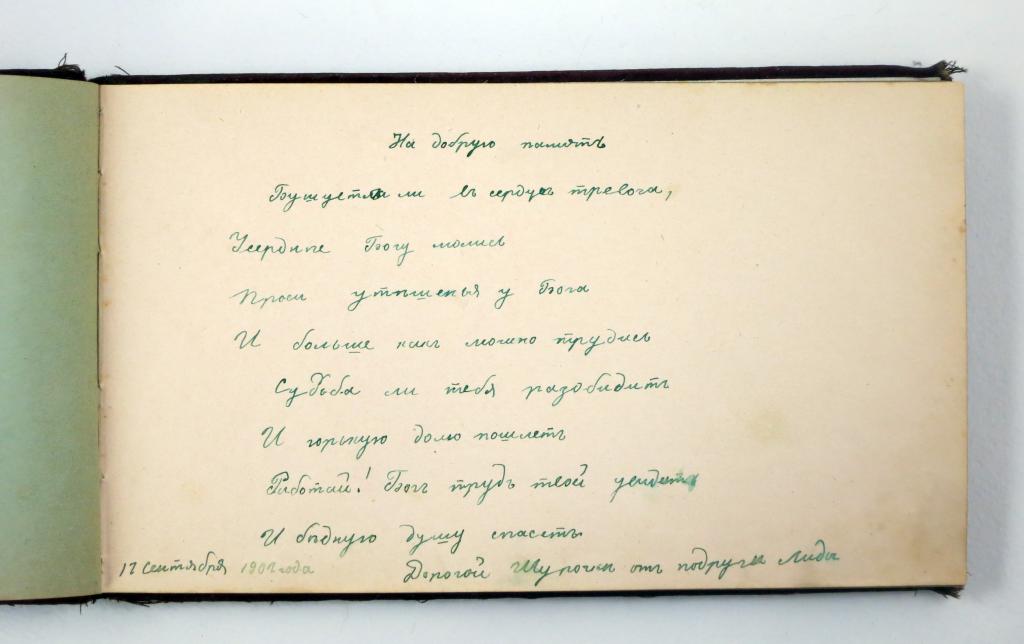 На добрую память
Бушуетъ ли въ сердце тревога,
Усердне Богу молись
Проси утѣшенья у Бога
И больше какъ можно трудись
Судьба ли тебя разобидитъ
И горькую долю пошлетъ
Работай! Богъ трудъ твой увидитъ
И бѣдную душу спасетъ
12 сентября 1902 года Дорогой Шурочки отъ подруги Лиды